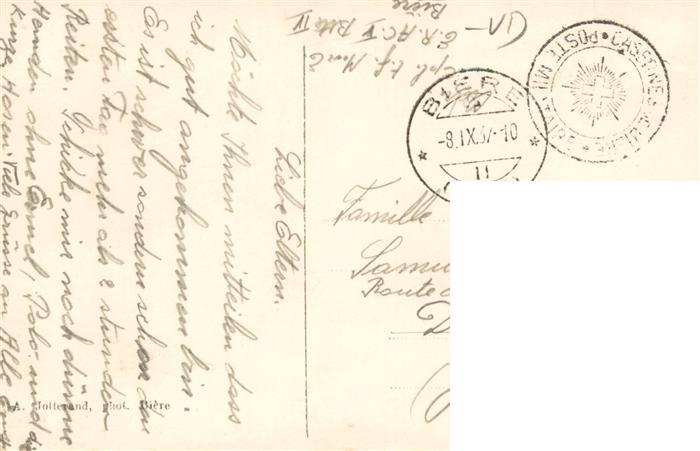 Liebe Eltern.
Möchte Ihnen mitteilen dass
ich gut angekommen bin.
Es ist schwer sondern schon den
ersten Tag mehr als 2 stunden
Reiten. Schicke mir noch dünne
Hemden ohne Ermel, Polo und die
kurze Hosen. Viele Grüsse an Alle
A. Jotterand, phot. Bière
Bière
BIÈRE
-8.IX.37.-10
POSTE MILITAIRE
CASERNES
Famille
Samu
Route d